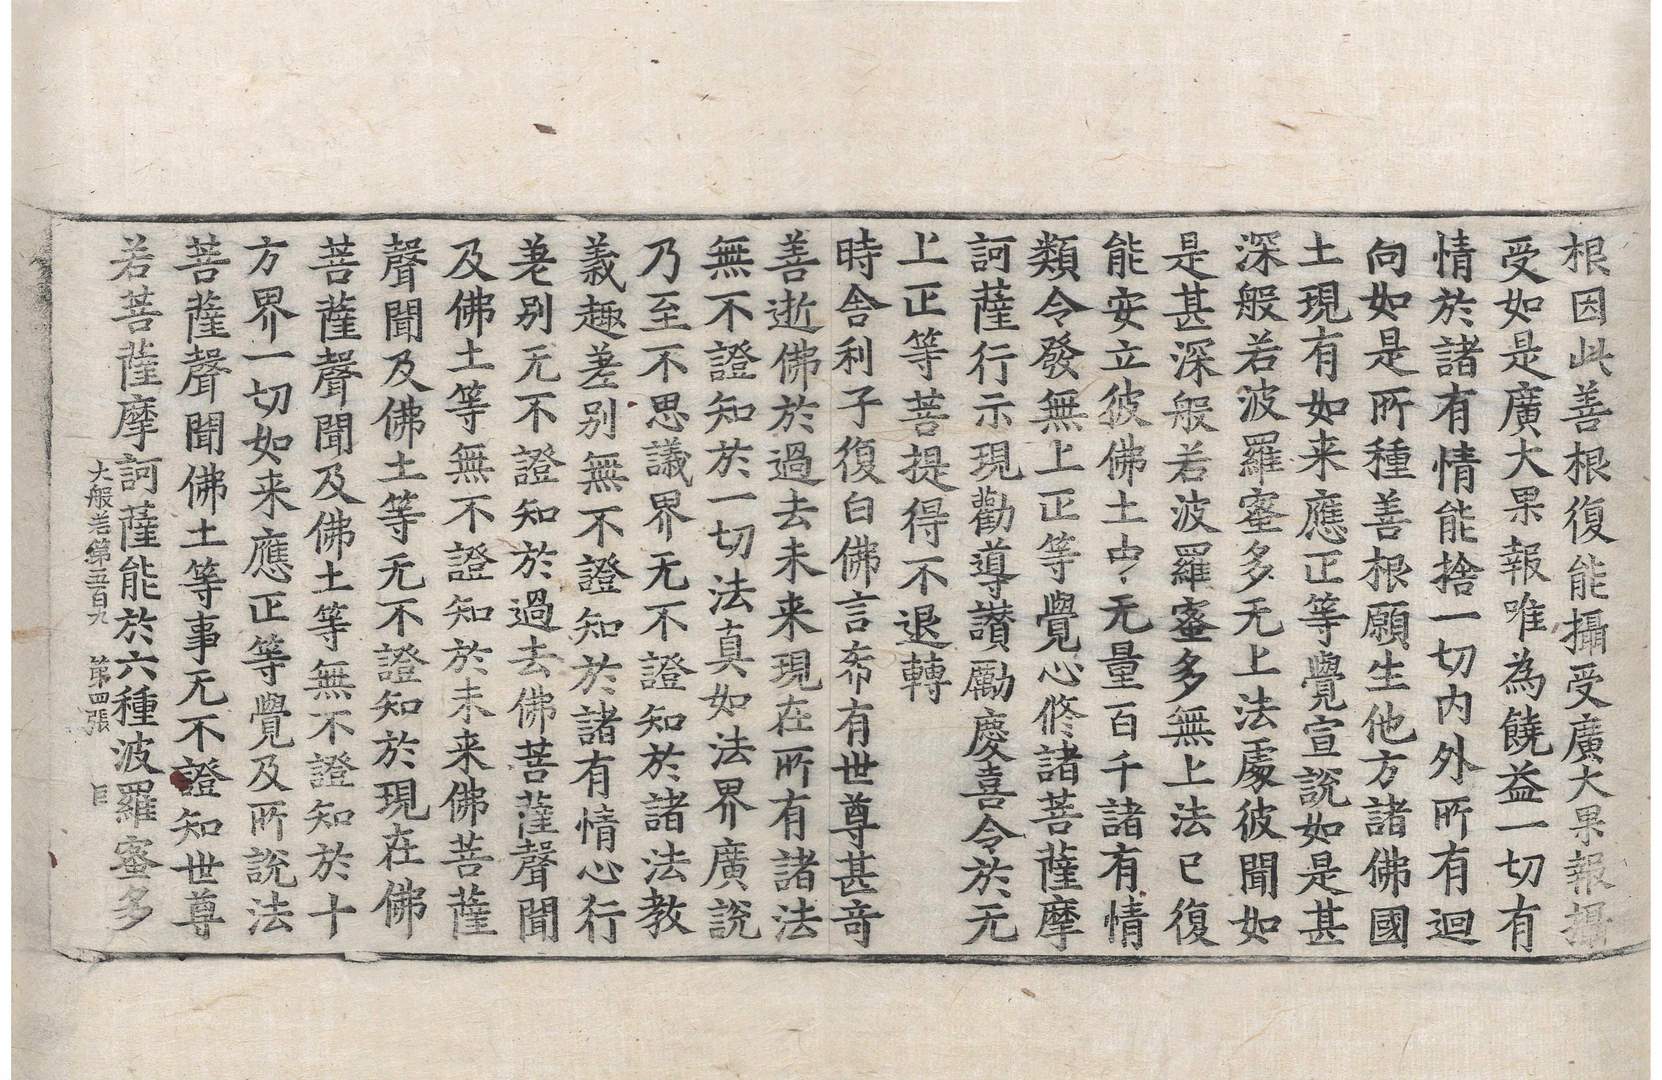 根因此善根復能攝受廣大果報攝
受如是廣大果報唯為饒益一切有
情於諸有情能捨一切内外所有迴
向如是所種善根願生他方諸佛國
土現有如来應正等覺宣說如是甚
深般若波羅蜜多无上法處彼聞如
是甚深般若波羅蜜多無上法已復
能安立彼佛土中无量百千諸有情
類令發無上正等覺心修諸菩薩摩
訶薩行示現勸導讃勵慶喜令於无
上正等菩提得不退轉
時舍利子復白佛言希有世尊甚竒
善逝佛於過去未来現在所有諸法
無不證知於一切法真如法界廣說
乃至不思議界无不證知於諸法教
義趣差别無不證知於諸有情心行
差别无不證知於過去佛菩薩聲聞
及佛土等無不證知於未来佛菩薩
聲聞及佛土等无不證知於現在佛
菩薩聲聞及佛土等無不證知於十
方界一切如来應正等覺及所說法
菩薩聲聞佛土等事无不證知世尊
若菩薩摩訶薩能於六種波羅蜜多
大般若第五百九 第四張